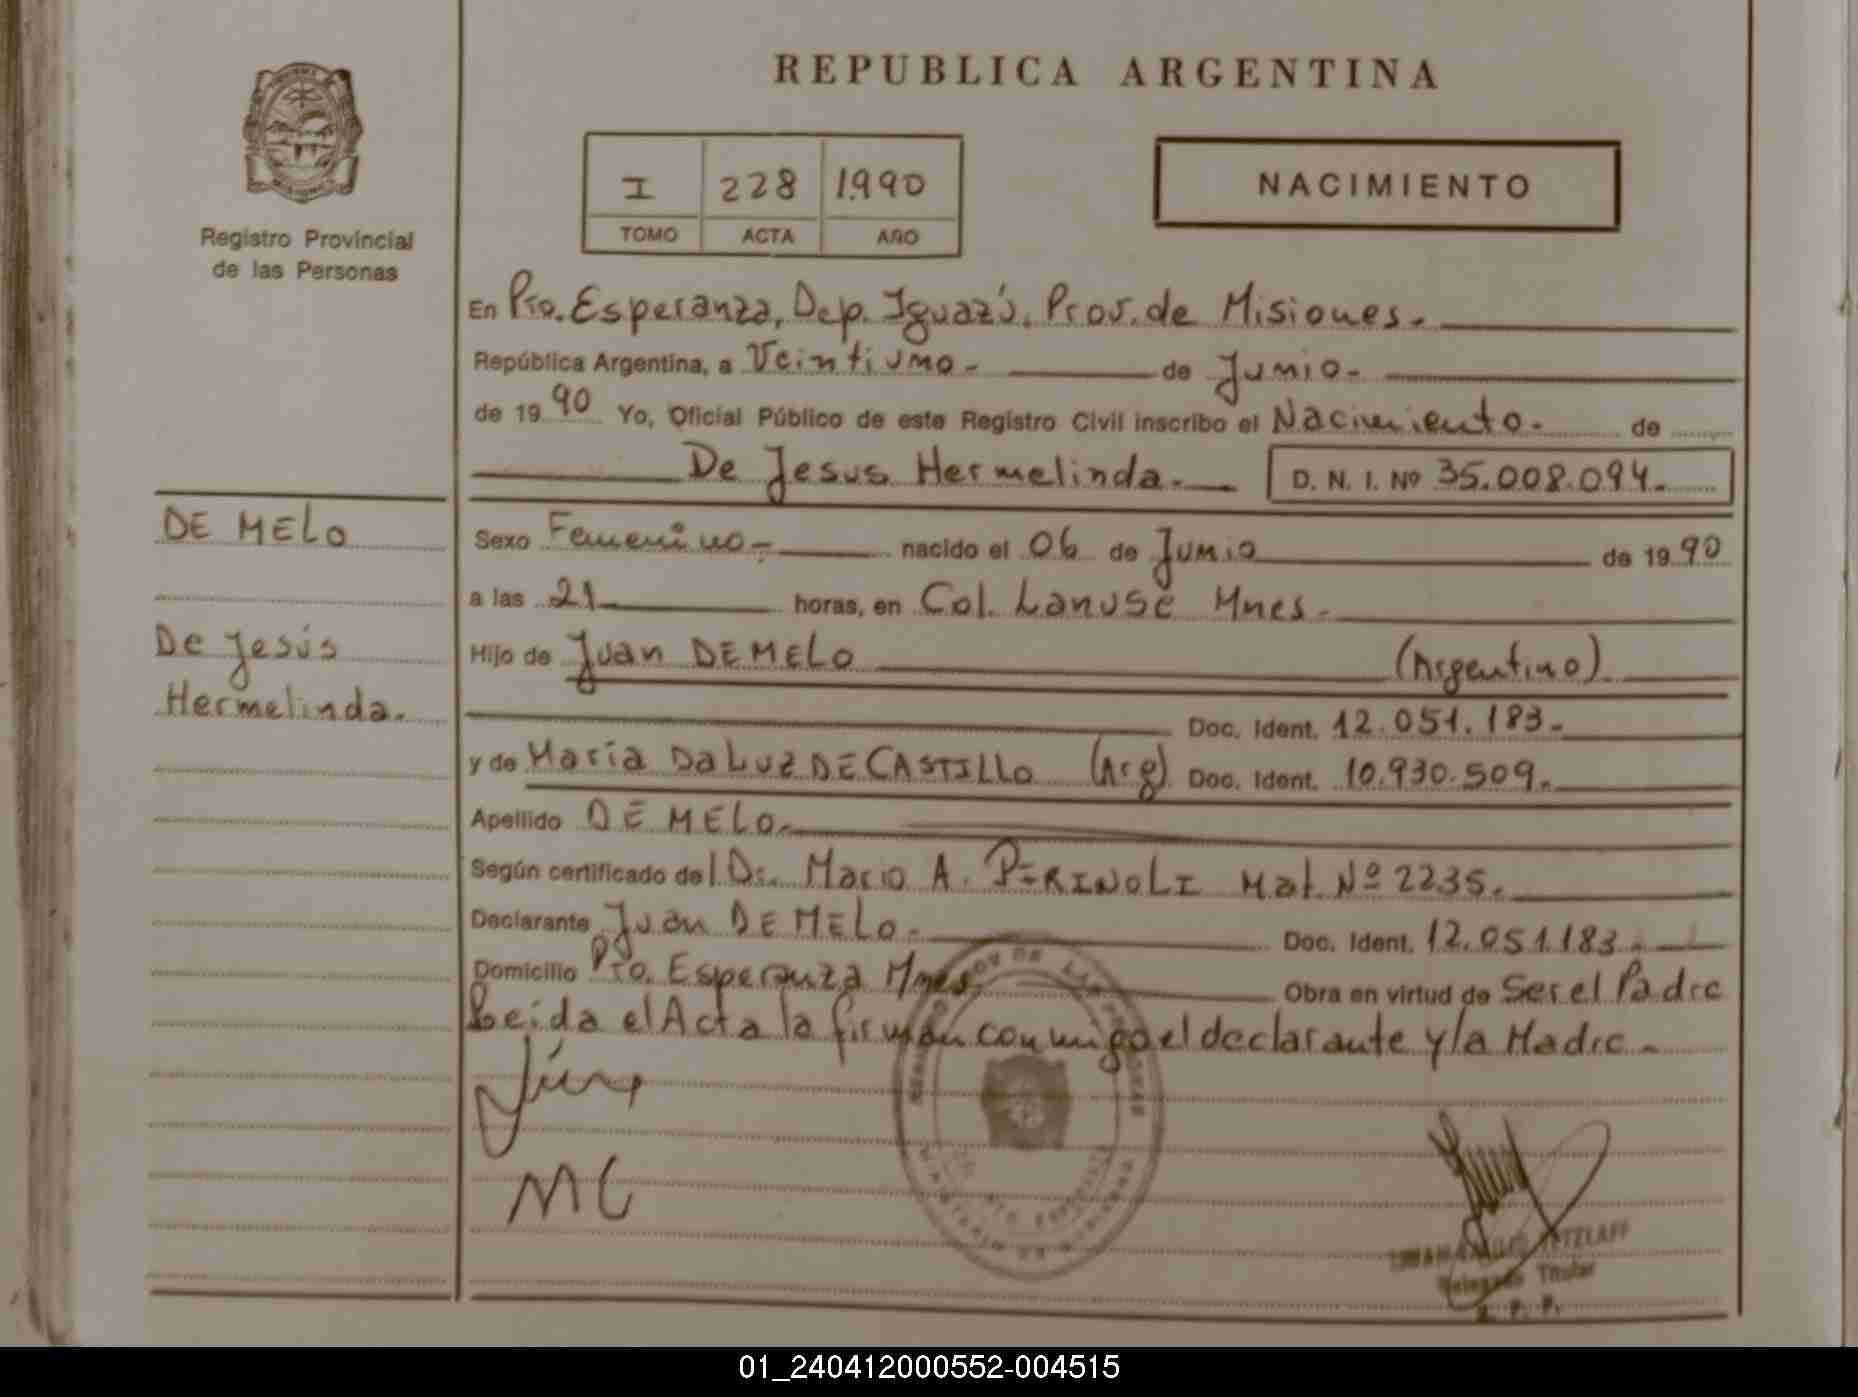 REPUBLICA ARGENTINA
I 228 1.990
TOMO ACTA AÑO
NACIMIENTO
Registro Provincial
de las Personas
En Pto. Esperanza, Dep. Iguazú, Prov. de Misiones.
República Argentina, a Veintiuno. de Junio.
de 1990 Yo, Oficial Público de este Registro Civil inscribo el Nacimiento. de
De Jesus Hermelinda. D. N. I. Nº 35.008.094.
DE MELO
Sexo Femenino. nacido el 06 de Junio de 1990
a las 21 horas, en Col. Lanuse Mnes.
De Jesús
Hermelinda.
Hijo de Juan DE MELO (Argentino)
Doc. Ident. 12.051.183.
y de María DA LUZ DE CASTILLO (Arg) Doc. Ident. 10.930.509.
Apellido DE MELO.
Según certificado del Dr. Mario A. PERINOLI Mat. Nº 2235.
Declarante Juan DE MELO. Doc. Ident. 12.051.183.
Domicilio Pto. Esperanza Mnes. Obra en virtud de Ser el Padre
Leida el Acta la firman conmigo el declarante y la Madre.
MC
Delegado Titular
R. P. P.
01_240412000552-004515